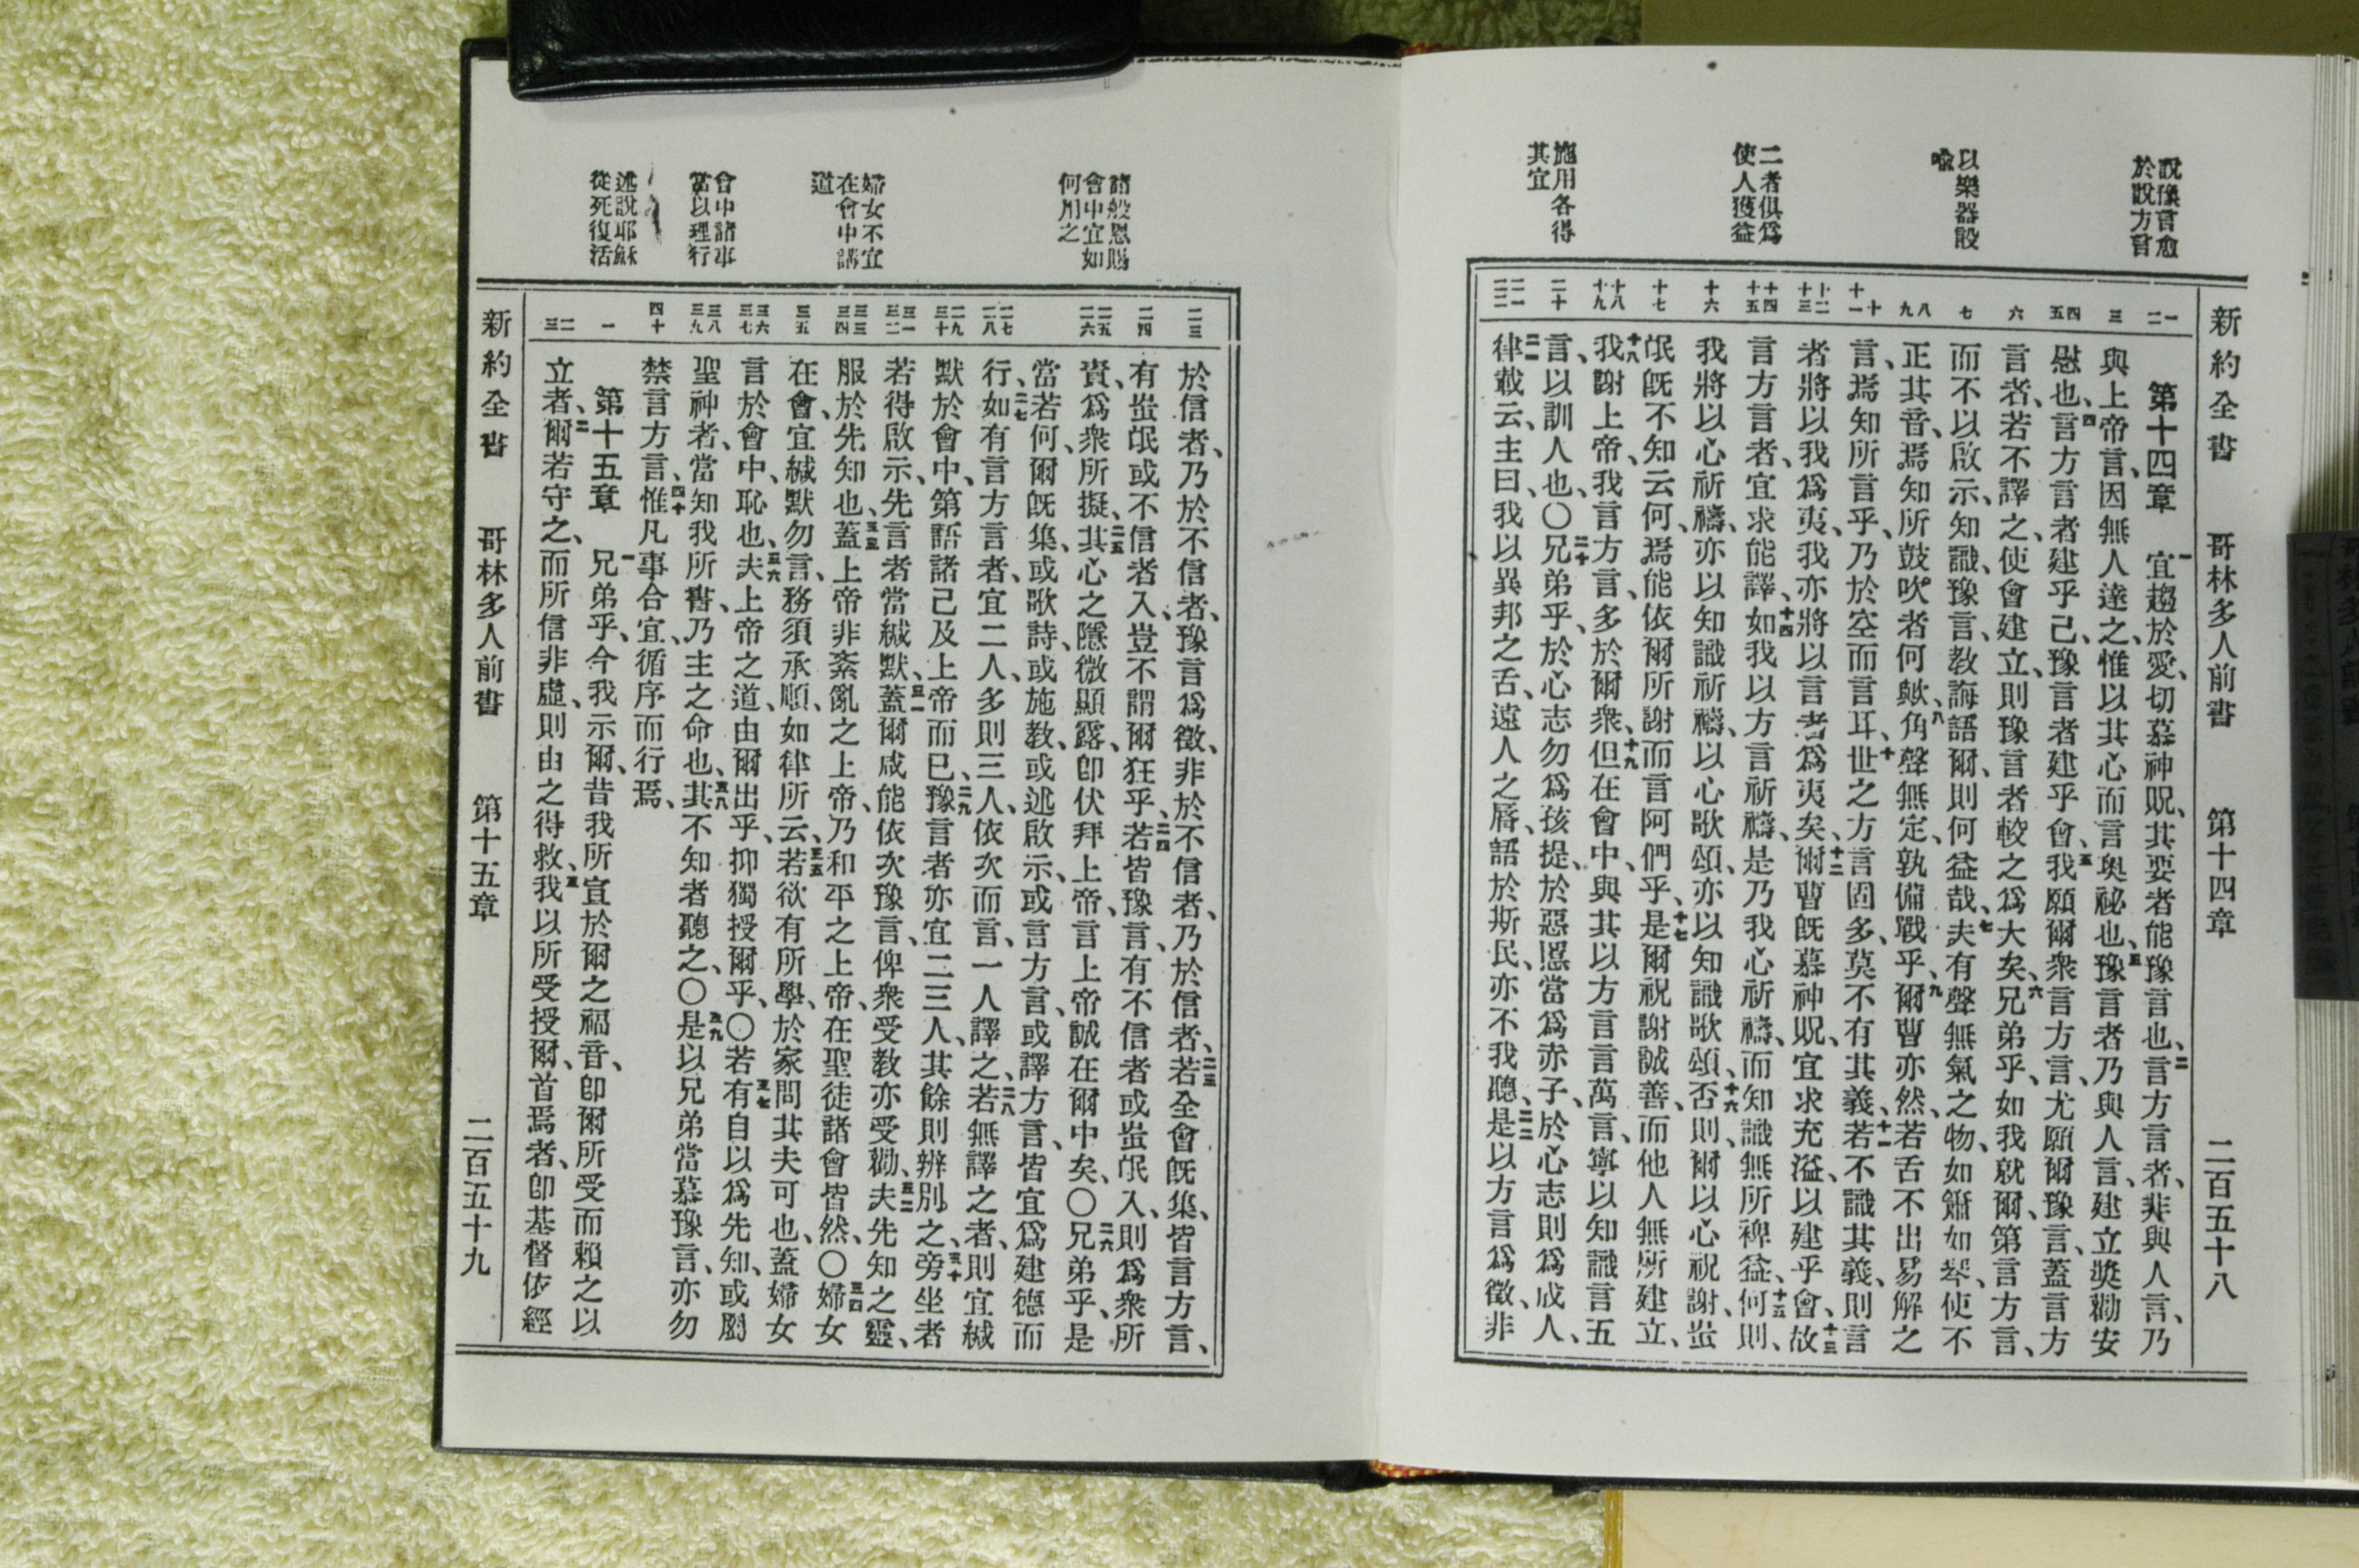 說豫言愈
於說方言
以樂器設
喻
二者俱爲
使人獲益
施用各得
其宜
新約全書 哥林多人前書 第十四章 二百五十八
一 二 三 四 五 六 七 八 九 十 十一 十二 十三 十四 十五 十六 十七 十八 十九 二十 二一 二二
第十四章 一宜趨於愛、切慕神貺、其要者能豫言也、二言方言者、非與人言、乃
與上帝言、因無人達之、惟以其心而言奧祕也、三豫言者乃與人言、建立奬勸安
慰也、四言方言者建乎己、豫言者建乎會、五我願爾衆言方言、尤願爾豫言、蓋言方
言者、若不譯之、使會建立、則豫言者較之爲大矣、六兄弟乎、如我就爾、第言方言、
而不以啟示、知識、豫言、教誨語爾、則何益哉、七夫有聲無氣之物、如簫如琴、使不
正其音、焉知所鼓吹者何歟、八角聲無定、孰備戰乎、九爾曹亦然、若舌不出易解之
言、焉知所言乎、乃於空而言耳、十世之方言固多、莫不有其義、十一若不識其義、則言
者將以我爲夷、我亦將以言者爲夷矣、十二爾曹旣慕神貺、宜求充溢、以建乎會、十三故
言方言者、宜求能譯、十四如我以方言祈禱、是乃我心祈禱、而知識無所裨益、十五何則、
我將以心祈禱、亦以知識祈禱、以心歌頌、亦以知識歌頌、十六否則、爾以心祝謝、蚩
氓旣不知云何、焉能依爾所謝而言阿們乎、十七是爾祝謝誠善、而他人無所建立、
十八我謝上帝、我言方言、多於爾衆、十九但在會中、與其以方言言萬言、寧以知識言五
言、以訓人也、〇二十兄弟乎、於心志勿爲孩提、於惡慝當爲赤子、於心志則爲成人、
二一律載云、主曰、我以異邦之舌、遠人之脣、語於斯民、亦不我聽、二二是以方言爲徵、非
諸般恩賜
會中宜如
何用之
婦女不宜
在會中講
道
會中諸事
當以理行
述說耶穌
從死復活
二三 二四 二五 二六 二七 二八 二九 三十 三一 三二 三三 三四 三五 三六 三七 三八 三九 四十 一 二 三
於信者、乃於不信者、豫言爲徵、非於不信者、乃於信者、二三若全會旣集、皆言方言、
有蚩氓或不信者入、豈不謂爾狂乎、二四若皆豫言、有不信者或蚩氓入、則爲衆所
責、爲衆所擬、二五其心之隱微顯露、卽伏拜上帝、言上帝誠在爾中矣、〇二六兄弟乎、是
當若何、爾旣集、或歌詩、或施教、或述啟示、或言方言、或譯方言、皆宜爲建德而
行、二七如有言方言者、宜二人、多則三人、依次而言、一人譯之、二八若無譯之者、則宜緘
默於會中、第語諸己及上帝而已、二九豫言者亦宜二三人、其餘則辨別之、三十旁坐者
若得啟示、先言者當緘默、三一蓋爾咸能依次豫言、俾衆受教亦受勸、三二夫先知之靈、
服於先知也、三三蓋上帝非紊亂之上帝、乃和平之上帝、在聖徒諸會皆然、〇三四婦女
在會、宜緘默勿言、務須承順、如律所云、三五若欲有所學、於家問其夫可也、蓋婦女
言於會中、恥也、三六夫上帝之道、由爾出乎、抑獨授爾乎、〇三七若有自以爲先知、或屬
聖神者、當知我所書、乃主之命也、三八其不知者聽之、〇三九是以兄弟當慕豫言、亦勿
禁言方言、四十惟凡事合宜、循序而行焉、
第十五章 一兄弟乎、今我示爾、昔我所宣於爾之福音、卽爾所受而賴之以
立者、二爾若守之、而所信非虛、則由之得救、三我以所受授爾、首焉者、卽基督依經
新約全書 哥林多人前書 第十五章 二百五十九